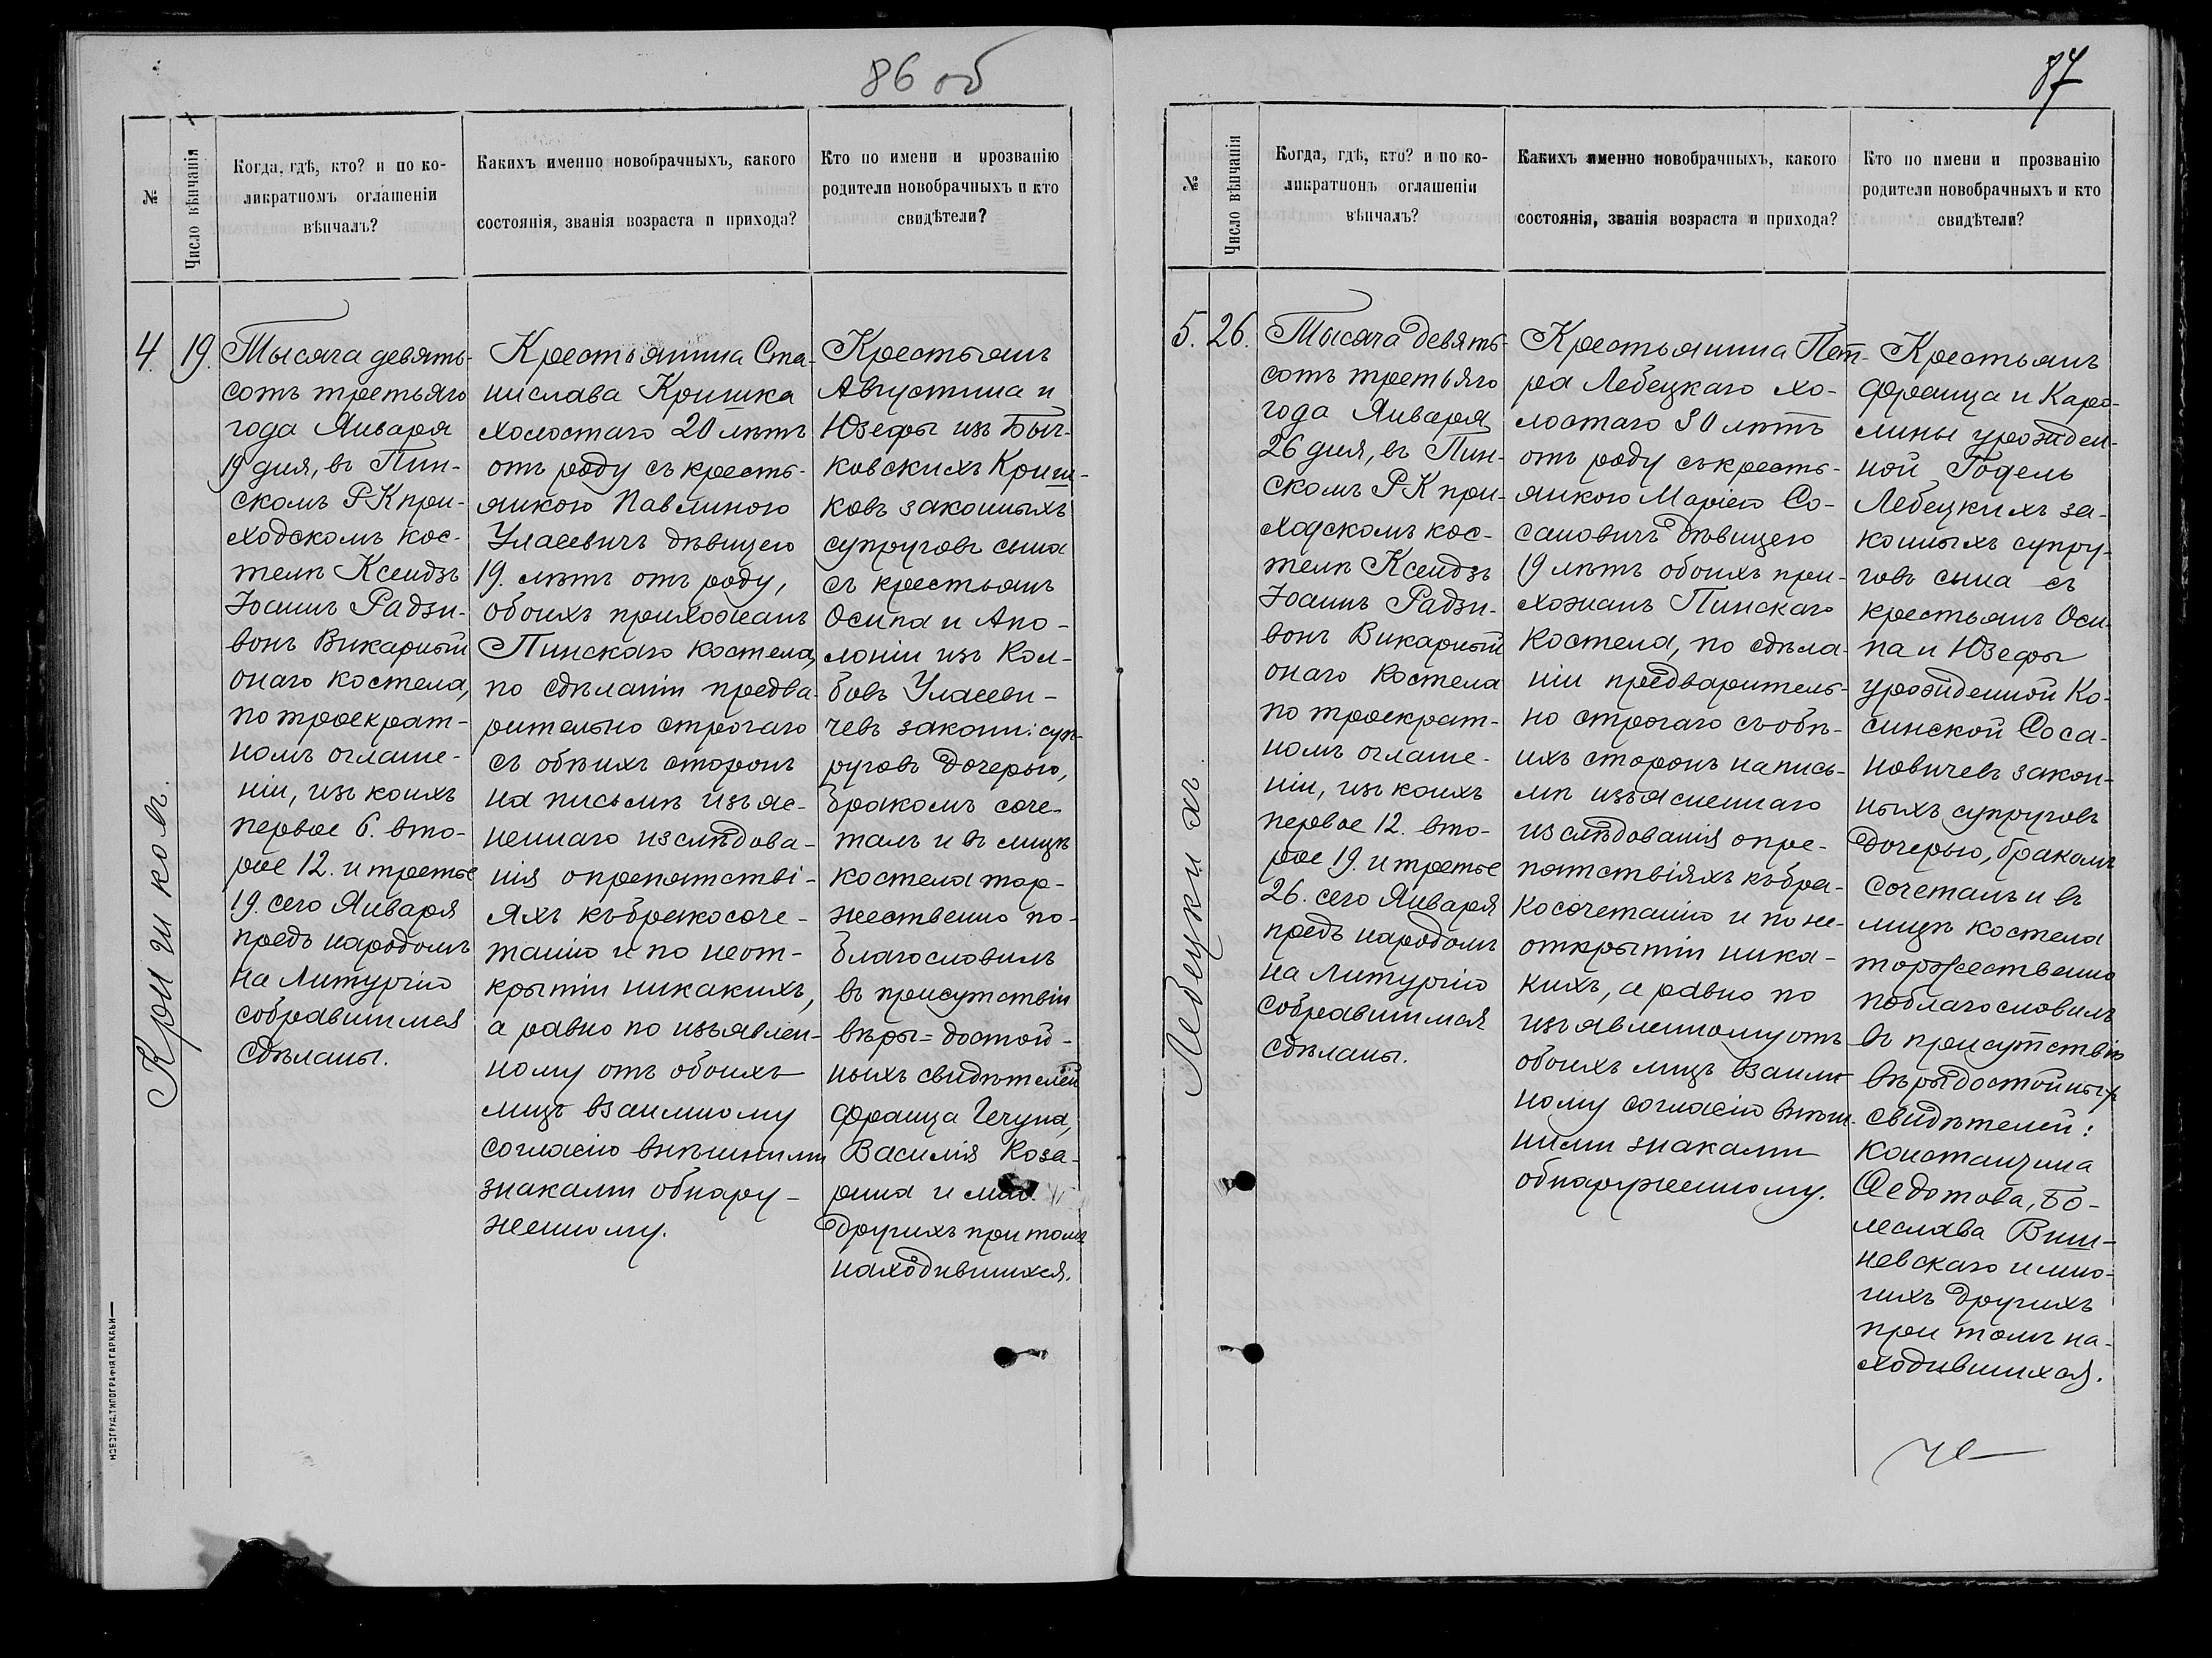 86 об
№
Число вѣнчанія
Когда, гдѣ, кто? и по ко-
ликратномъ оглашеніи
вѣнчалъ?
Какихъ именно новобрачныхъ, какого
состоянія, званія возраста и прихода?
Кто по имени и прозванію
родители новобрачныхъ и кто
свидѣтели?
4.
19.
Кришковъ.
Тысяча девять-
сотъ третьяго
года Января
19 дня, въ Пин-
скомъ Р-К при-
ходскомъ кос-
телѣ Ксендзъ
Іоаннъ Радзи-
вонъ Викарный
онаго костела,
по троекрат-
номъ оглаше-
ніи, изъ коихъ
первое 6. вто-
рое 12. и третье
19. сего Января
предъ народомъ
на Литургію
собравшимся
сдѣланы.
Крестьянина Ста-
нислава Кришка
холостаго 20 лѣтъ
отъ роду съ кресть-
янкою Павлиною
Уласевичъ дѣвицею
19. лѣтъ отъ роду,
обоихъ прихожанъ
Пинскаго костела,
по сдѣланіи предва-
рительно строгаго
съ обѣихъ сторонъ
на письмѣ изъяс-
неннаго изслѣдова-
нія о препятстві-
яхъ къ бракосоче-
танію и по неот-
крытіи никакихъ,
а равно по изъявлен-
ному отъ обоихъ
лицъ взаимному
согласію внѣшними
знаками обнару-
женному.
Крестьянъ
Августина и
Юзефы изъ Быч-
ковскихъ Криш-
ковъ законныхъ
супруговъ сына
съ крестьянъ
Осипа и Апо-
лоніи изъ Кол-
бовъ Уласеви-
чевъ законн: суп-
руговъ дочерью,
бракомъ соче-
талъ и въ лицѣ
костела тор-
жественно по-
благословилъ
въ присутствіи
вѣры=достой-
ныхъ свидѣтелей
Франца Чечуна,
Василія Коза-
рина и мно.
другихъ при томъ
находившихся.
НОВОГРУД. ТИПОГРАФІЯ ГАРКАВИ
87
№
Число вѣнчанія
Когда, гдѣ, кто? и по ко-
ликратномъ оглашеніи
вѣнчалъ?
Какихъ именно новобрачныхъ, какого
состоянія, званія возраста и прихода?
Кто по имени и прозванію
родители новобрачныхъ и кто
свидѣтели?
5.
26.
Лебецкихъ.
Тысяча девять-
сотъ третьяго
года Января
26 дня, въ Пин-
скомъ Р-К при-
ходскомъ кос-
телѣ Ксендзъ
Іоаннъ Радзи-
вонъ Викарный
онаго костела
по троекрат-
номъ оглаше-
ніи, изъ коихъ
первое 12. вто-
рое 19. и третье
26. сего Января
предъ народомъ
на Литургію
собравшимся
сдѣланы.
Крестьянина Пет-
ра Лебецкаго хо-
лостаго 30 лѣтъ
отъ роду съ кресть-
янкою Маріею Со-
сановичъ дѣвицею
19 лѣтъ обоихъ при-
хожанъ Пинскаго
костела, по сдѣла-
ніи предваритель-
но строгаго съ обѣ-
ихъ сторонъ на пись-
мѣ изъясненнаго
изслѣдованія о пре-
пятствіяхъ къ бра-
косочетанію и по не-
открытіи ника-
кихъ, а равно по
изъявленному отъ
обоихъ лицъ взаим-
ному согласію внѣш-
ними знаками
обнаруженному.
Крестьянъ
Франца и Каро-
лины урожден-
ной Годель
Лебецкихъ за-
конныхъ супру-
говъ сына съ
крестьянъ Оси-
па и Юзефы
урожденной Ко-
синской Соса-
новичевъ закон-
ныхъ супруговъ
дочерью, бракомъ
сочеталъ и въ
лицѣ костела
торжественно
поблагословилъ
въ присутствіи
вѣры достойныхъ
свидѣтелей:
Константина
Федотова, Бо-
леслава Виш-
невскаго и мно-
гихъ другихъ
при томъ на-
ходившихся.